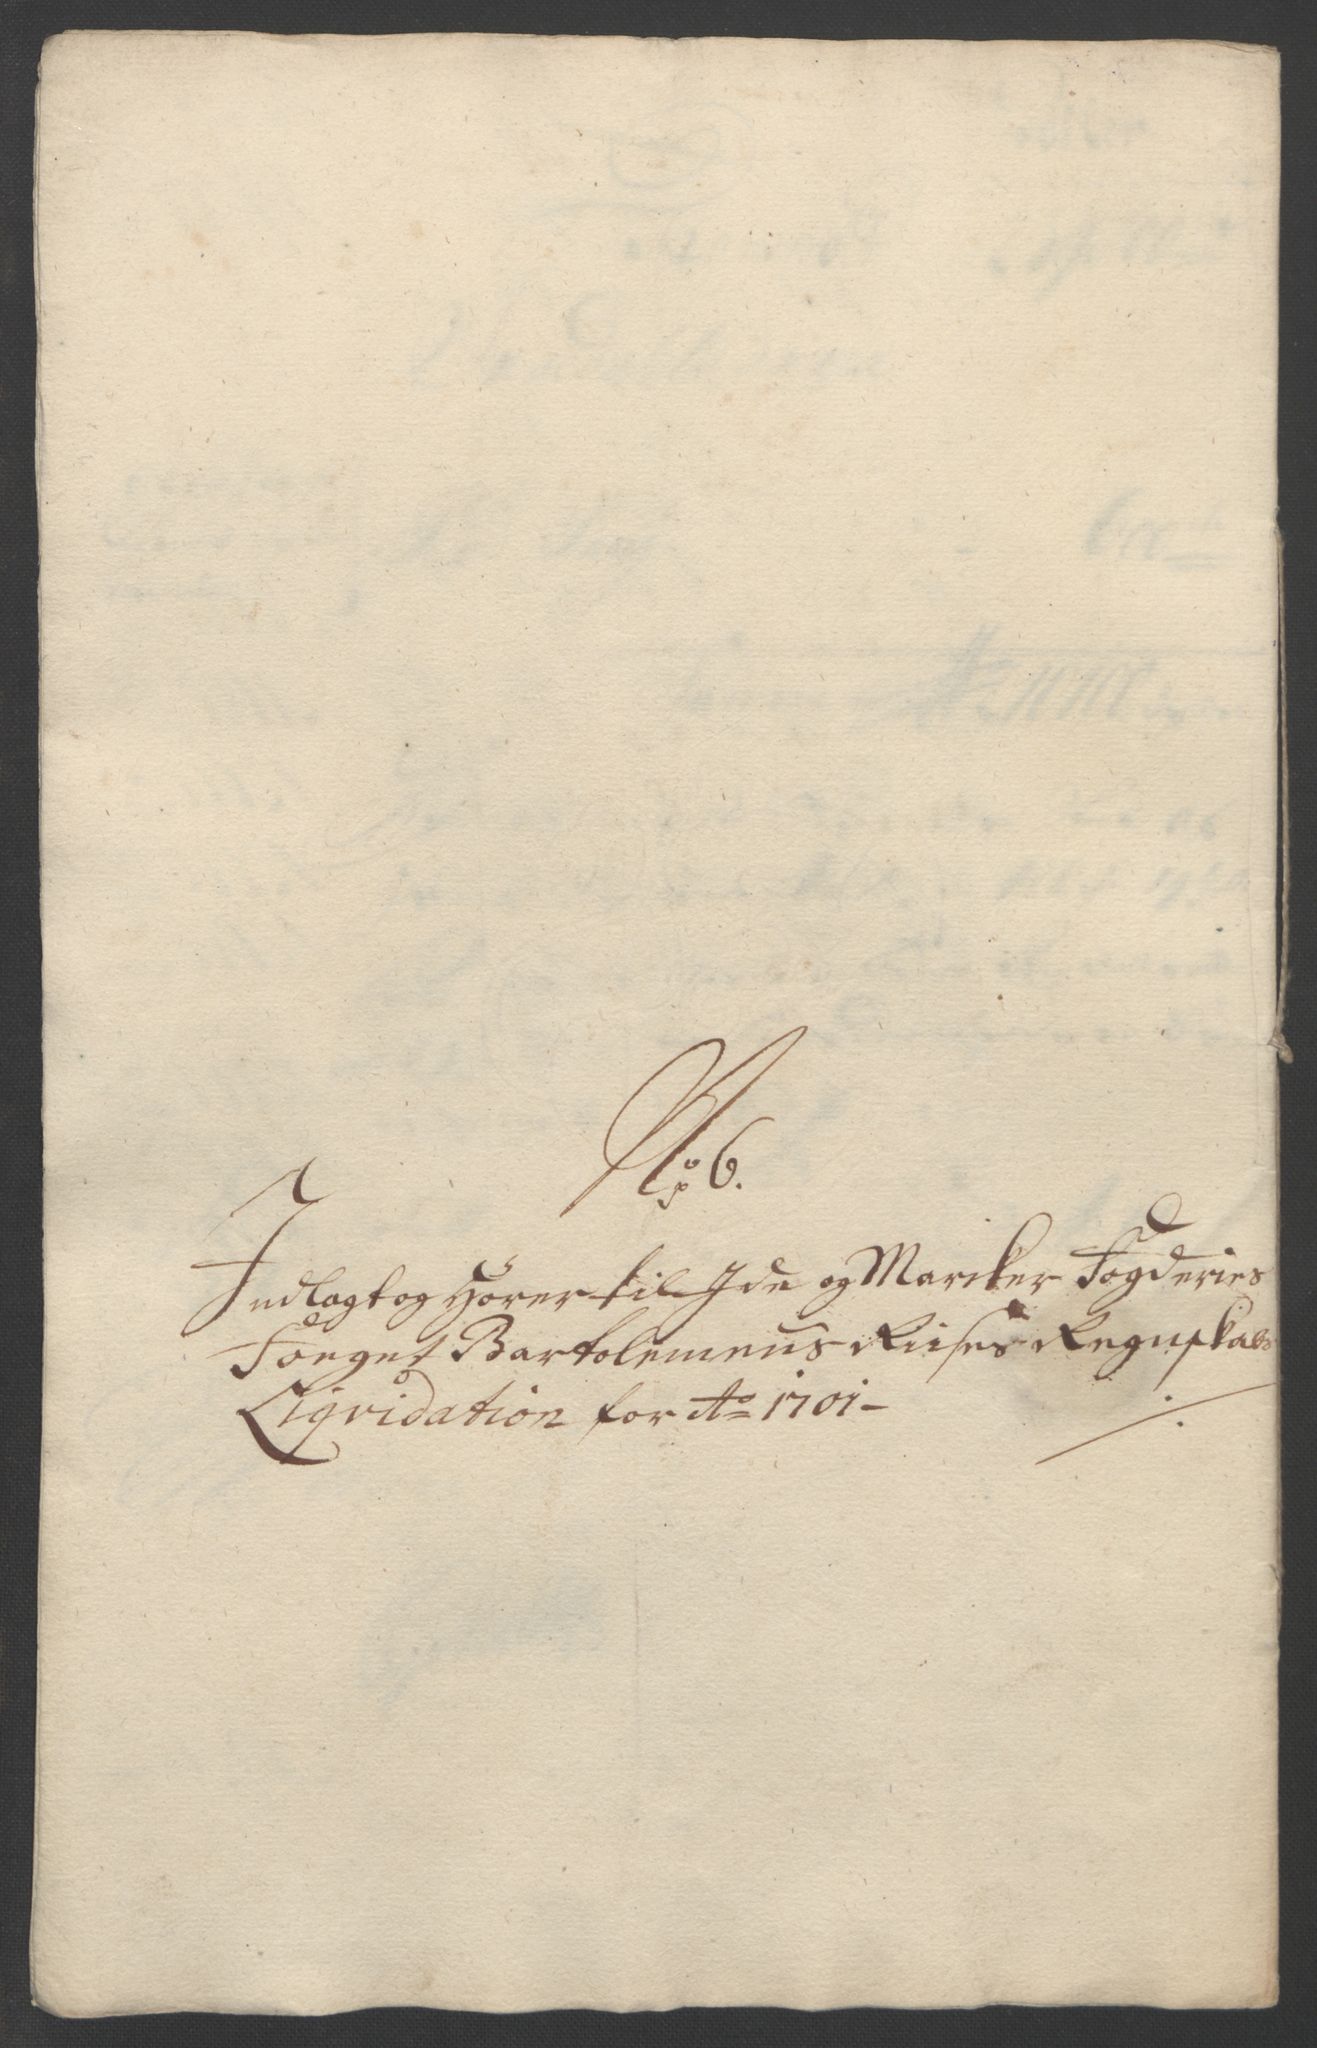 No 6.
Indlagt og Hörer til Ide og Marcker Fogderies
Foeget Bartolemeus Riises Regnskabs
Liqvidation for Ao 1701-